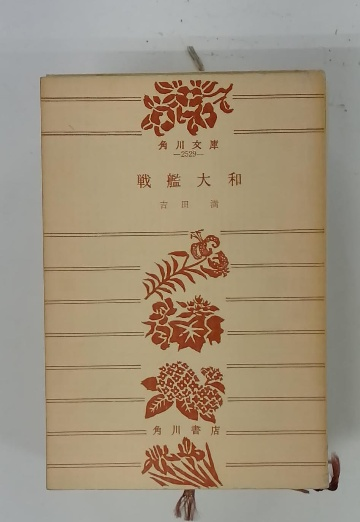 角川文庫
—2529—
戦艦大和
吉田 満
角川書店